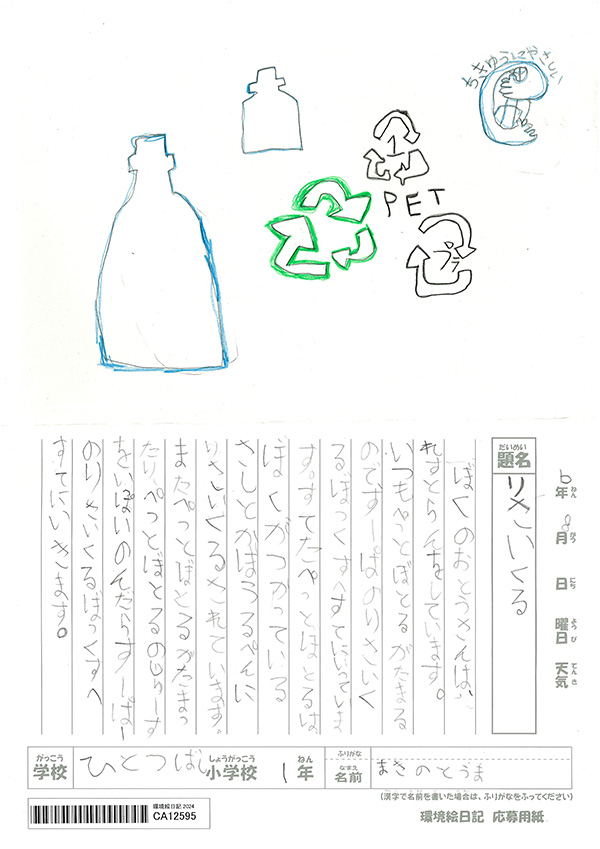 ちきゅうにやさしい
1
PET
プラ
だいめい
題名
りさいくる
6年 8月 日 曜日 天気
ねん がつ にち ようび てんき
ぼくのおとうさんは、
れすとらんをしています。
いつもぺっとぼとるがたまる
のです。すーぱーのりさいく
るぼっくすへすてにいっていま
す。すてたぺっとぼとるは
ぼくがつかっている
さしとかぼうるぺんに
りさいくるされています。
またぺっとぼとるがたまっ
たりぺっとぼとるのじゅーす
をいっぱいのんだらすーぱー
のりさいくるぼっくすへ
すてにいきます。
がっこう
学校
ひとつばし
しょうがっこう
小学校
1
ねん
年
ふりがな
なまえ
名前
まきのとうま
(漢字で名前を書いた場合は、ふりがなをふってください)
環境絵日記 2024
CA12595
環境絵日記 応募用紙